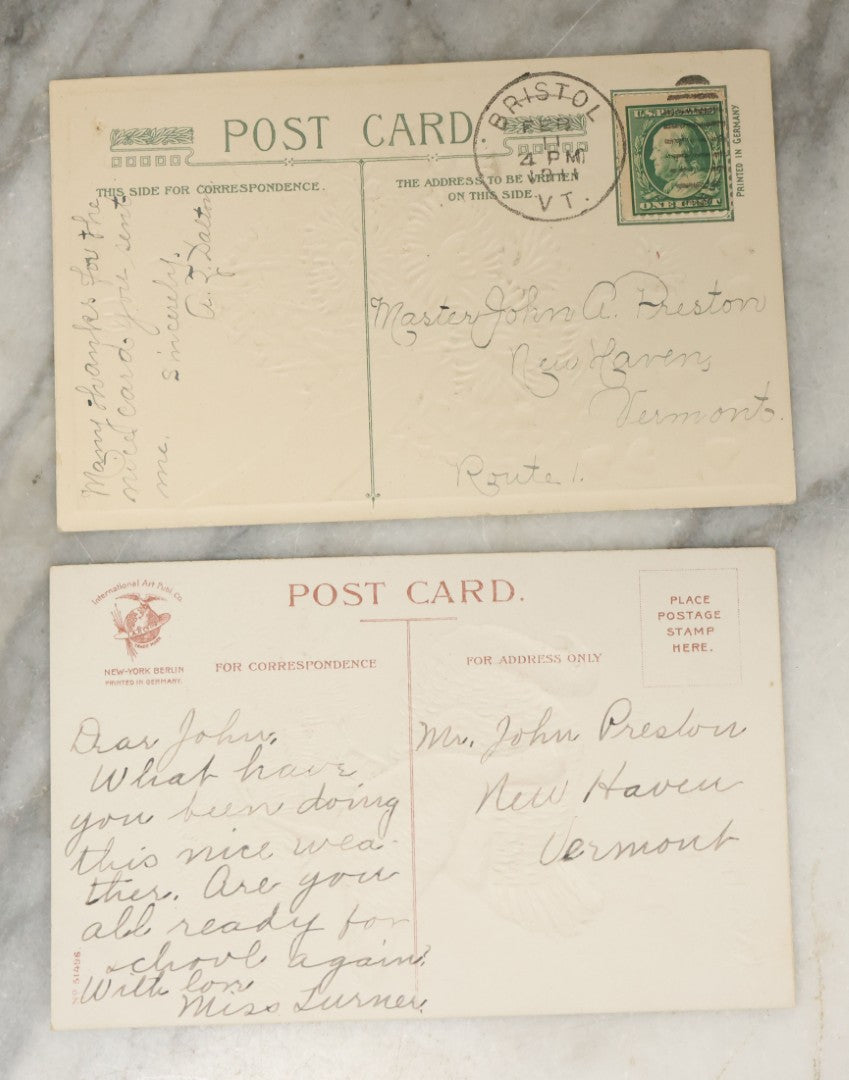 POST CARD
THIS SIDE FOR CORRESPONDENCE.
THE ADDRESS TO BE WRITTEN
ON THIS SIDE.
BRISTOL
FEB
11
4 PM
1911
VT.
U.S. POSTAGE
ONE CENT
PRINTED IN GERMANY
Many thanks for the
nice card you sent
me. Sincerely,
A. L. Dalton
Master John A. Preston
New Haven,
Vermont.
Route 1.
International Art Publ. Co.
TRADE MARK
NEW-YORK BERLIN
PRINTED IN GERMANY.
POST CARD.
FOR CORRESPONDENCE
FOR ADDRESS ONLY
PLACE
POSTAGE
STAMP
HERE.
Dear John,
What have
you been doing
this nice wea-
ther. Are you
all ready for
school again?
With love
Miss Turner.
Mr. John Preston
New Haven
Vermont
NO 51496.